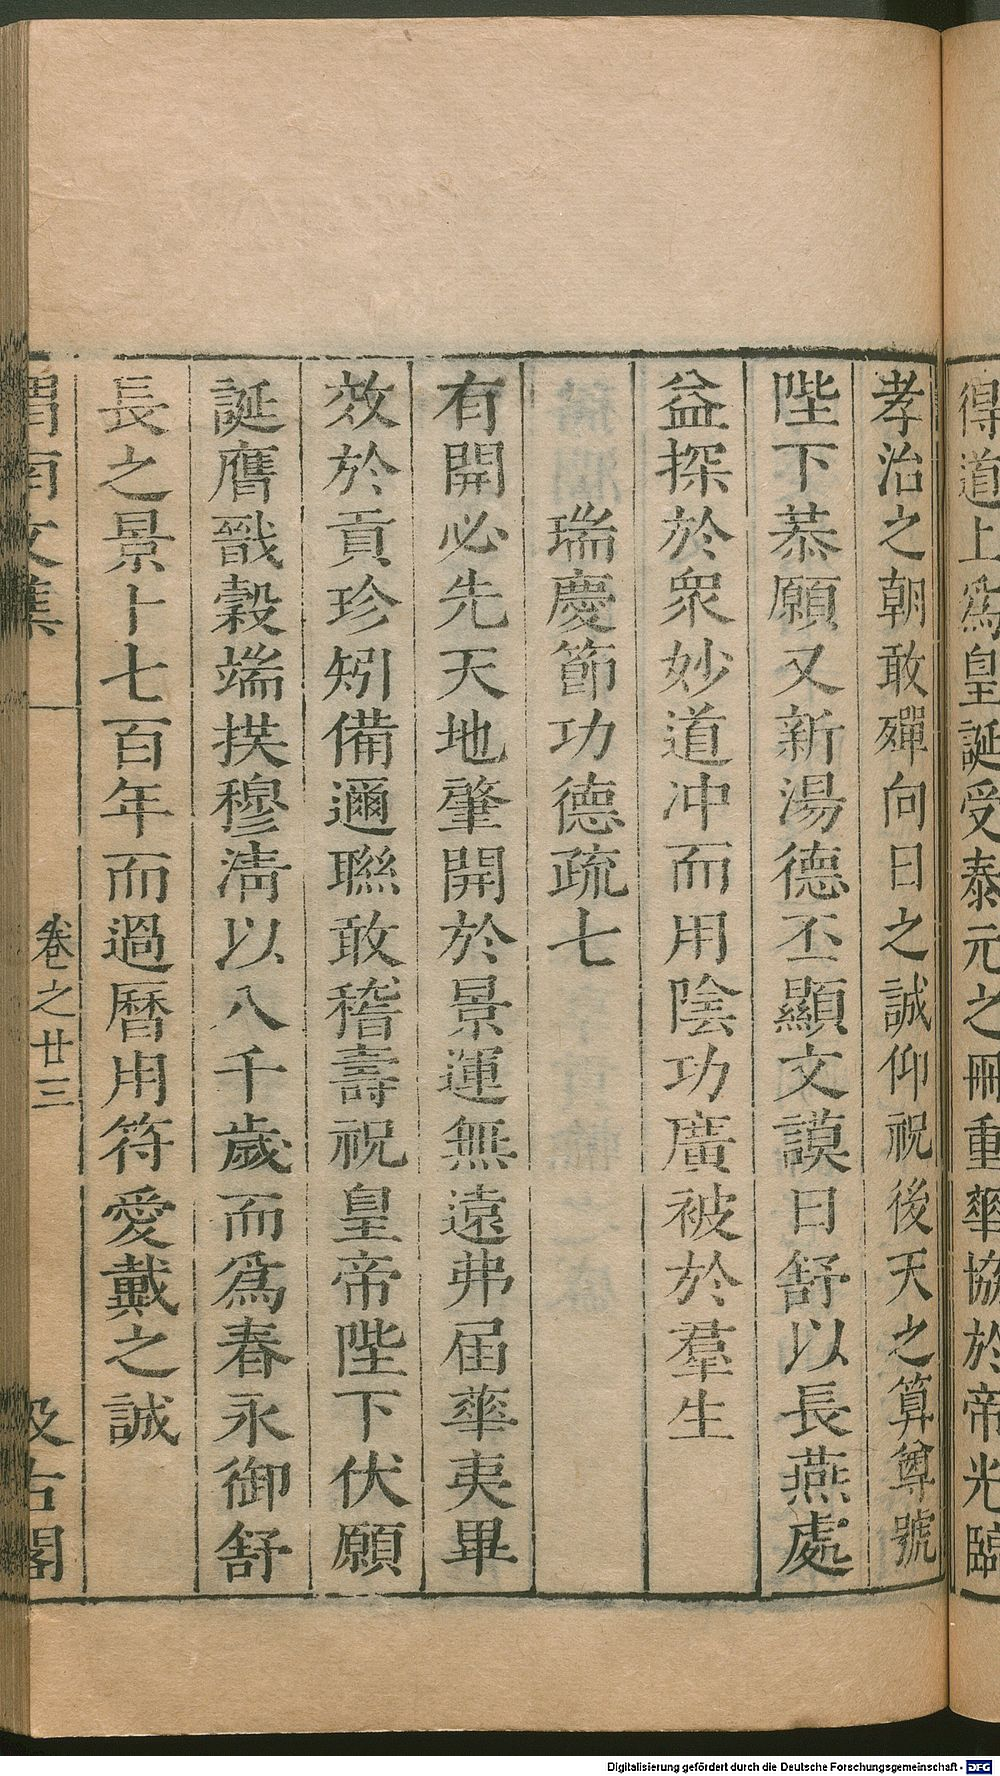 得道上爲皇誕受泰元之冊重華協於帝光臨
孝治之朝敢殫向日之誠仰祝後天之算尊號
陛下恭願又新湯德丕顯文謨日舒以長燕處
益探於衆妙道冲而用陰功廣被於羣生
瑞慶節功德疏七
有開必先天地肇開於景運無遠弗届華夷畢
效於貢珍矧備邇聯敢稽壽祝皇帝陛下伏願
誕膺戩穀端揆穆淸以八千歲而爲春永御舒
長之景卜七百年而過曆用符愛戴之誠
渭南文集
卷之廿三
汲古閣
Digitalisierung gefördert durch die Deutsche Forschungsgemeinschaft - DFG